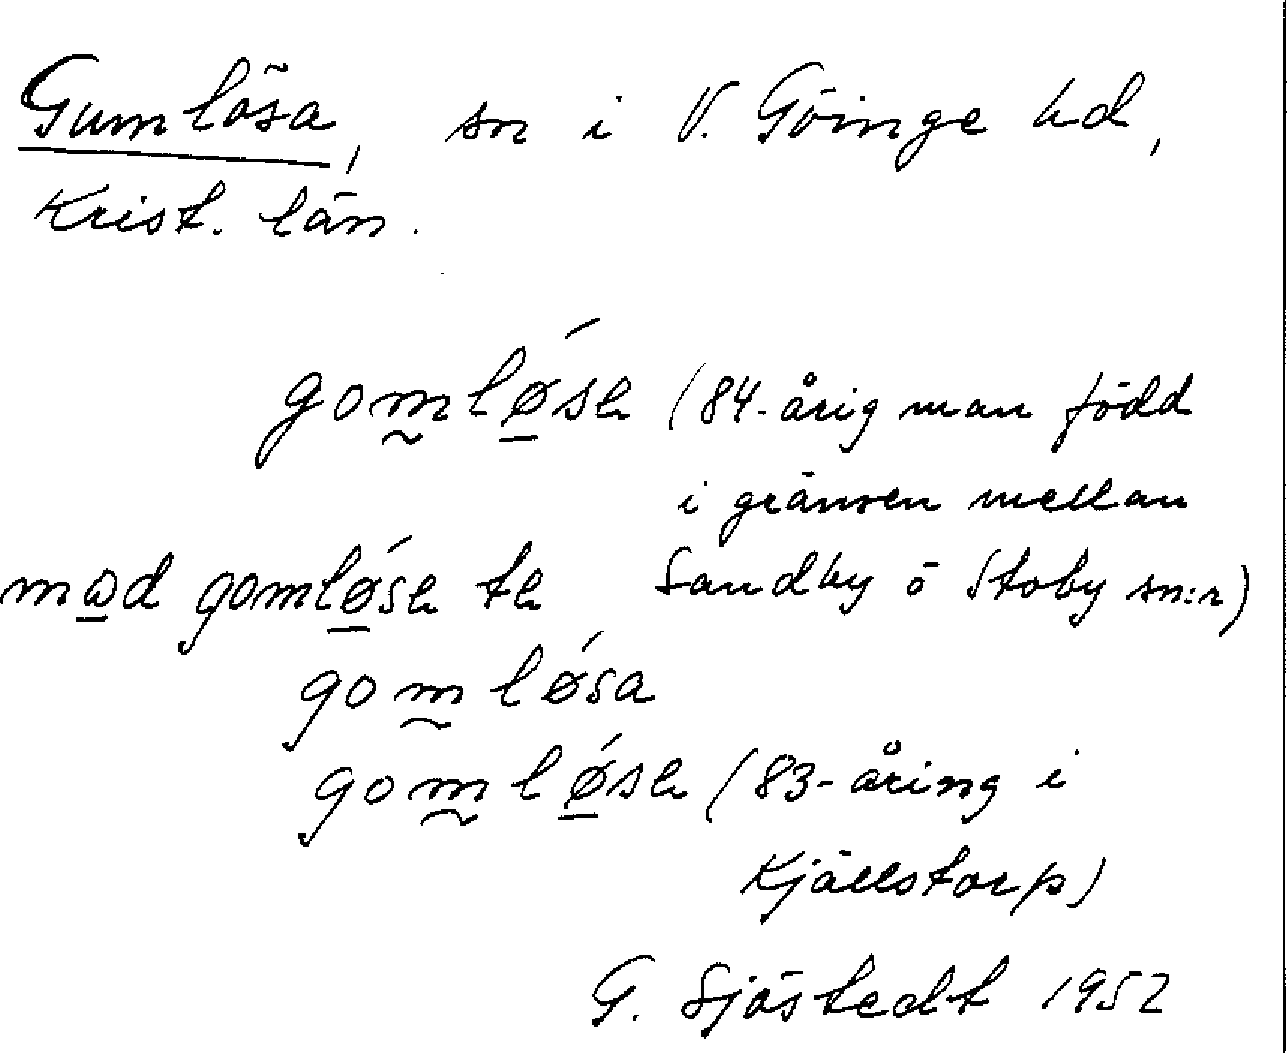 Gumlösa, sn i V. Göinge hd,
Krist. län.
gomløsa (84-årig man född
i gränsen mellan
mød gomløsa ta Sandby ö Stoby sn:r)
gomløsa
gomløsa (83-åring i
Kjällstorp)
G. Sjöstedt 1952